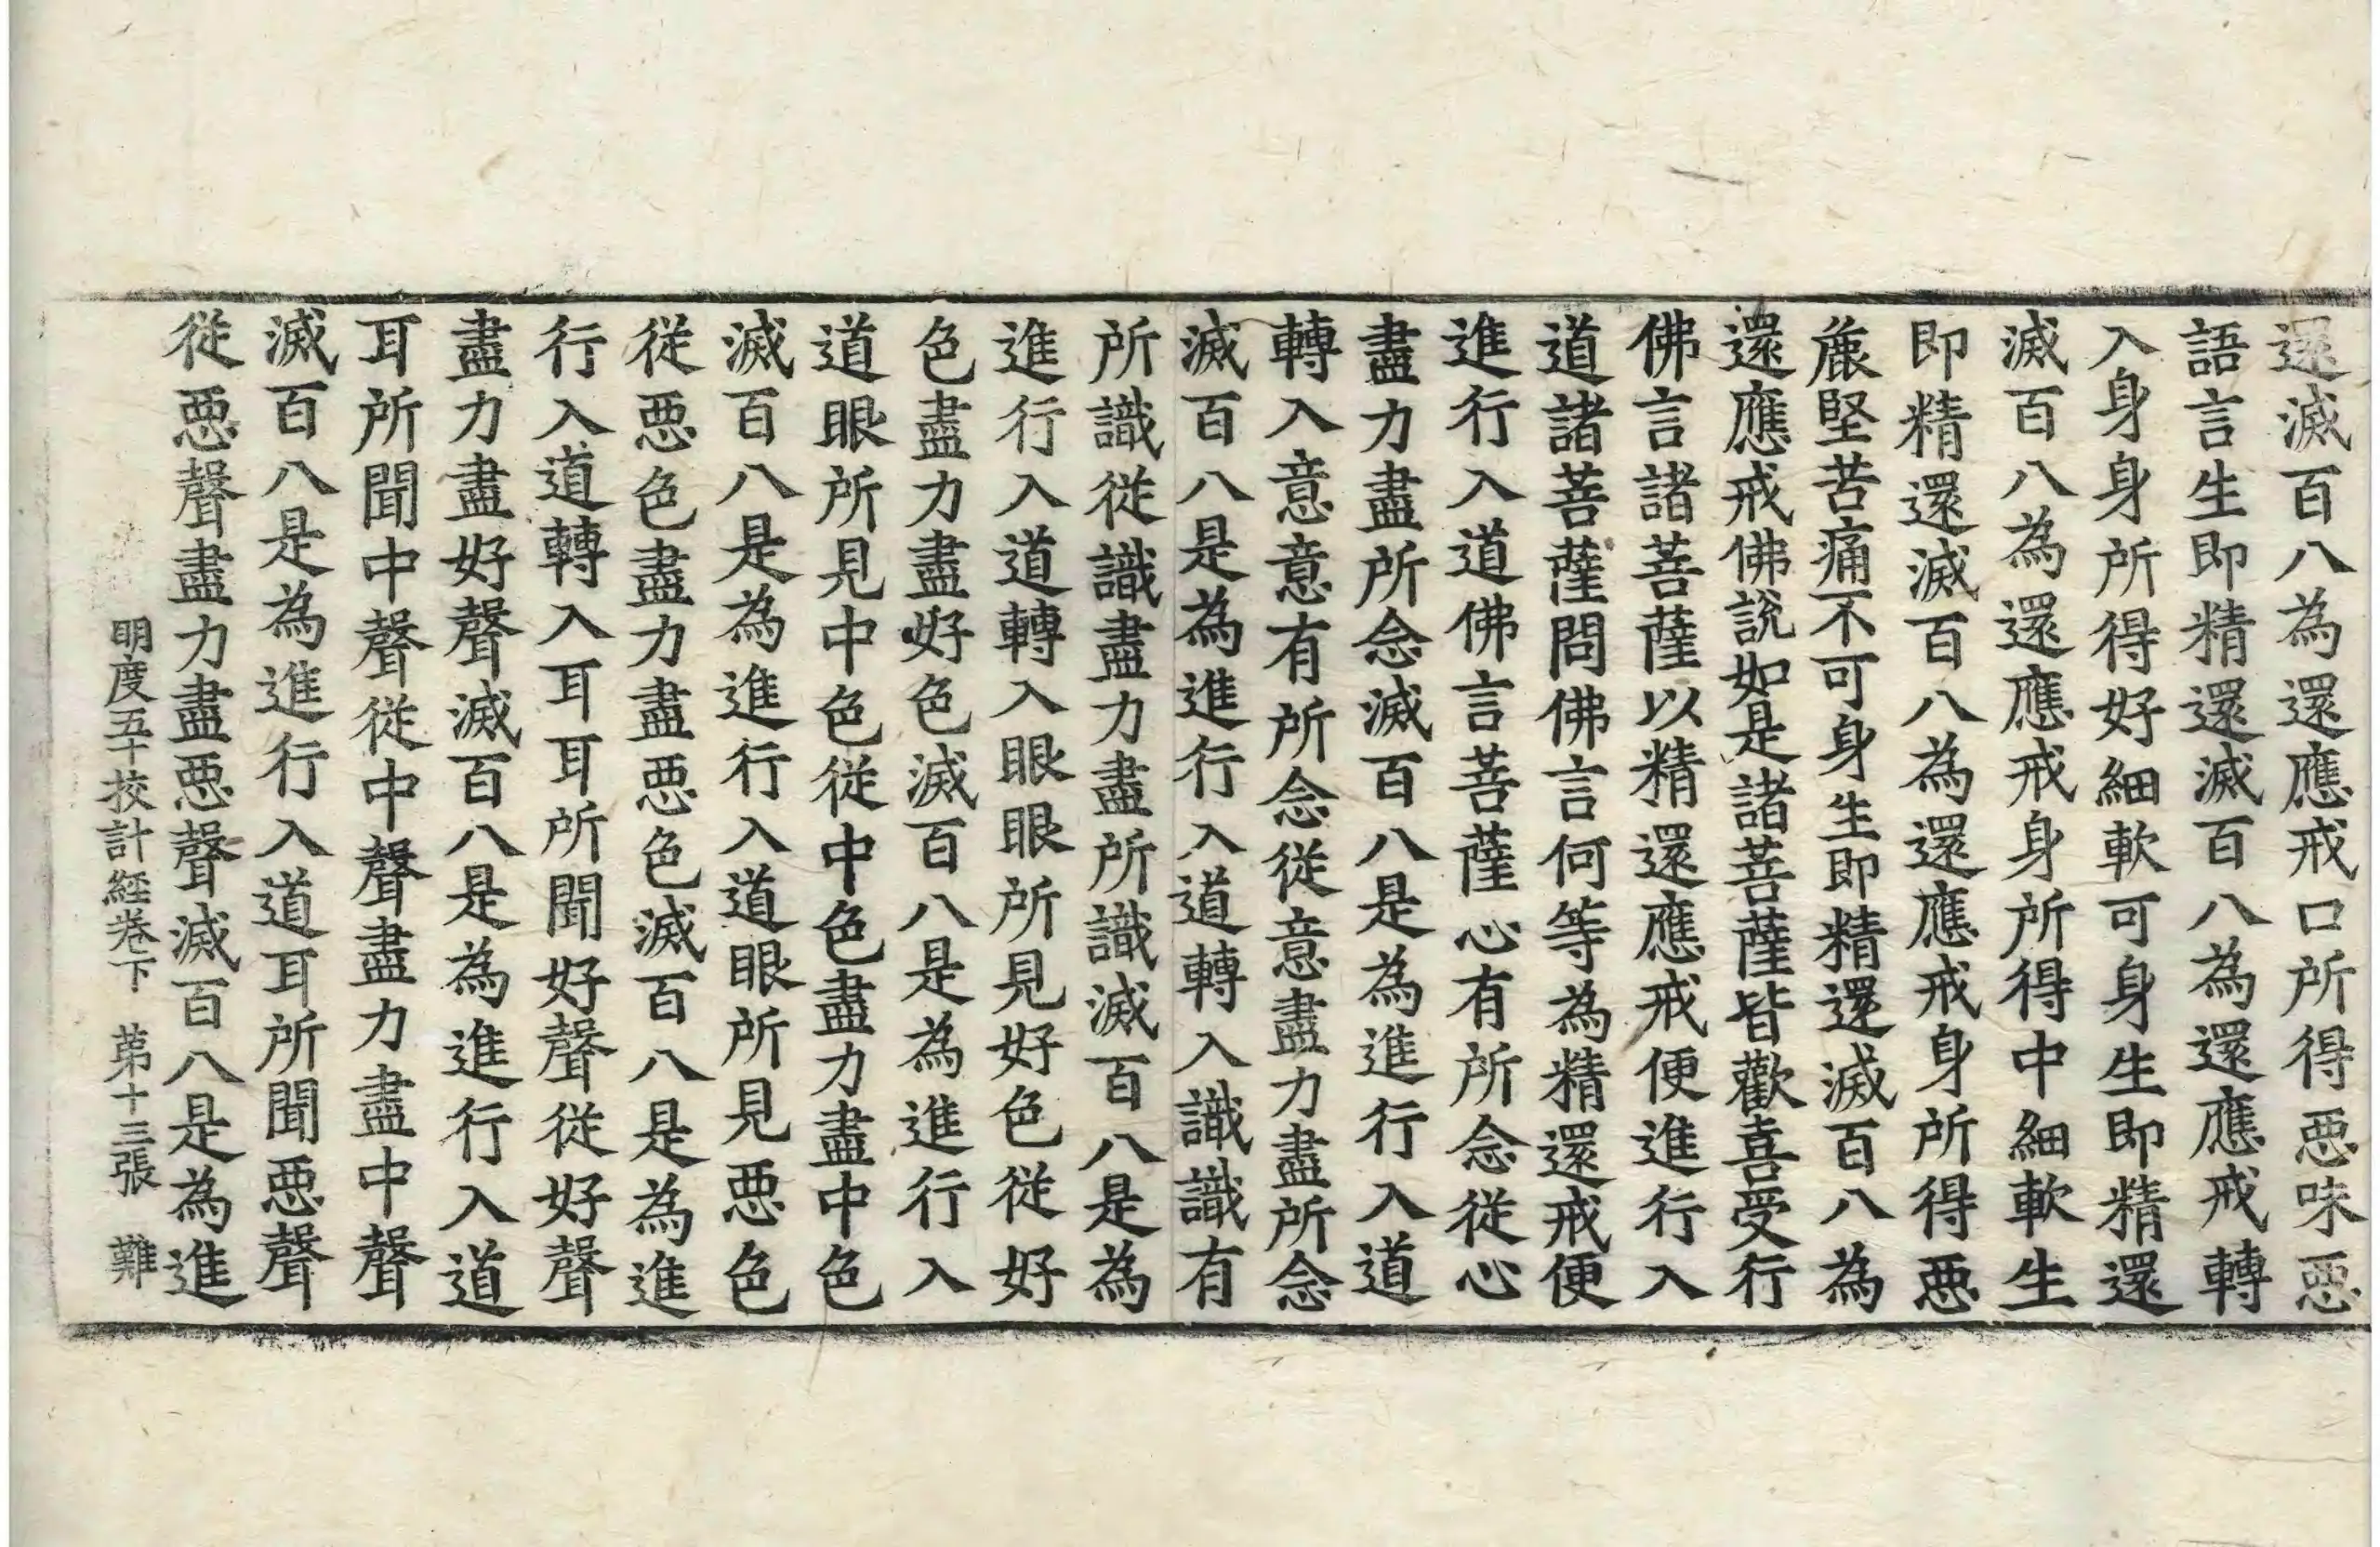 還滅百八為還應戒口所得惡味惡
語言生即精還滅百八為還應戒轉
入身身所得好細軟可身生即精還
滅百八為還應戒身所得中細軟生
即精還滅百八為還應戒身所得惡
麁堅苦痛不可身生即精還滅百八為
還應戒佛說如是諸菩薩皆歡喜受行
佛言諸菩薩以精還應戒便進行入
道諸菩薩問佛言何等為精還戒便
進行入道佛言菩薩心有所念從心
盡力盡所念滅百八是為進行入道
轉入意意有所念從意盡力盡所念
滅百八是為進行入道轉入識識有
所識從識盡力盡所識滅百八是為
進行入道轉入眼眼所見好色從好
色盡力盡好色滅百八是為進行入
道眼所見中色從中色盡力盡中色
滅百八是為進行入道眼所見惡色
從惡色盡力盡惡色滅百八是為進
行入道轉入耳耳所聞好聲從好聲
盡力盡好聲滅百八是為進行入道
耳所聞中聲從中聲盡力盡中聲
滅百八是為進行入道耳所聞惡聲
從惡聲盡力盡惡聲滅百八是為進
明度五十校計經卷下 第十三張 難